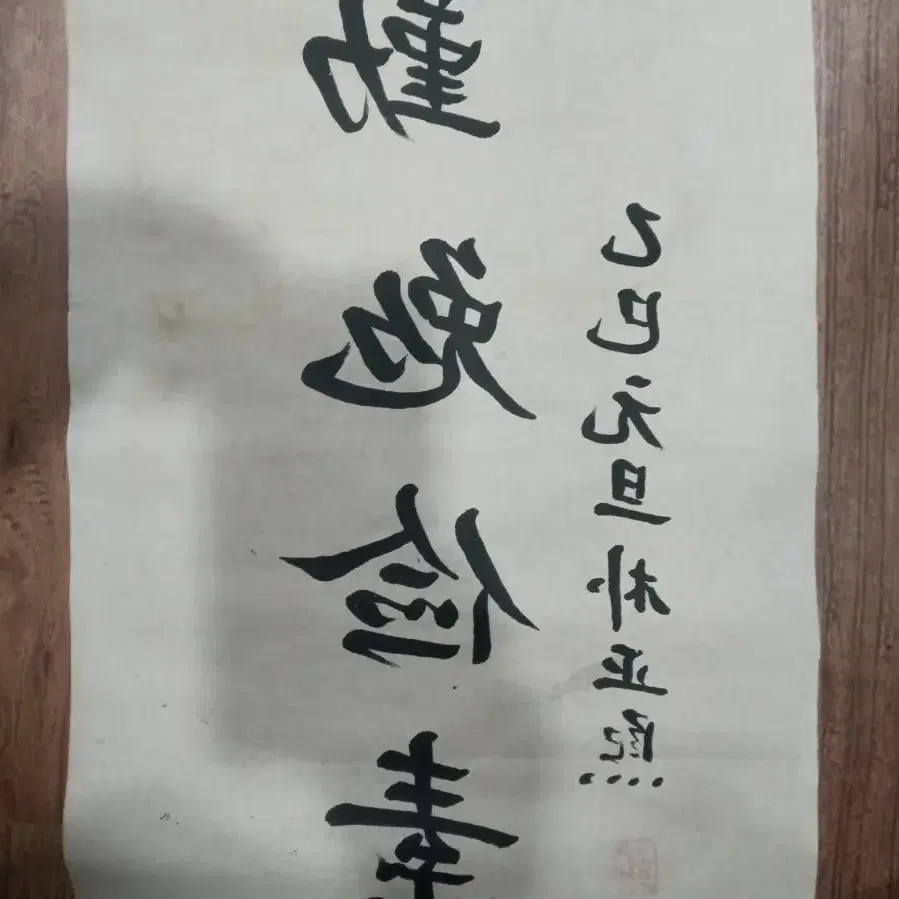 勤勉儉素
乙巳元旦 朴正熙